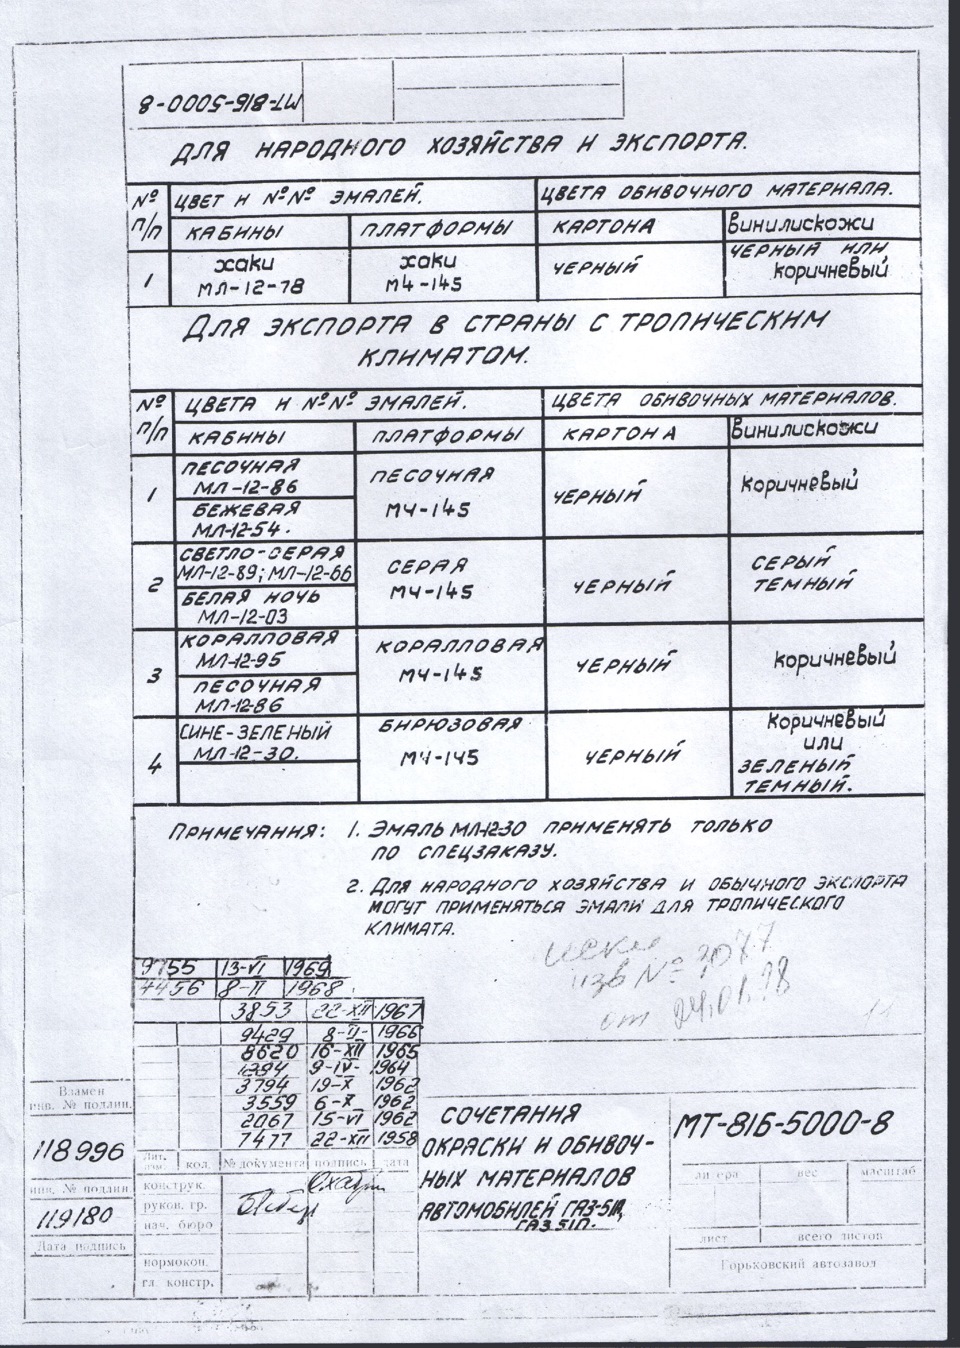 МТ-816-5000-8
ДЛЯ НАРОДНОГО ХОЗЯЙСТВА И ЭКСПОРТА.
№ п/п
ЦВЕТ И №№ ЭМАЛЕЙ.
ЦВЕТА ОБИВОЧНОГО МАТЕРИАЛА.
КАБИНЫ
ПЛАТФОРМЫ
КАРТОНА
ВИНИЛИСКОЖИ
1
ХАКИ
МЛ-12-78
ХАКИ
МЧ-145
ЧЕРНЫЙ
ЧЕРНЫЙ ИЛИ
КОРИЧНЕВЫЙ
ДЛЯ ЭКСПОРТА В СТРАНЫ С ТРОПИЧЕСКИМ
КЛИМАТОМ.
№ п/п
ЦВЕТА И №№ ЭМАЛЕЙ.
ЦВЕТА ОБИВОЧНЫХ МАТЕРИАЛОВ.
КАБИНЫ
ПЛАТФОРМЫ
КАРТОНА
ВИНИЛИСКОЖИ
1
ПЕСОЧНАЯ
МЛ-12-86
БЕЖЕВАЯ
МЛ-12-54.
ПЕСОЧНАЯ
МЧ-145
ЧЕРНЫЙ
КОРИЧНЕВЫЙ
2
СВЕТЛО-СЕРАЯ
МЛ-12-89; МЛ-12-66
БЕЛАЯ НОЧЬ
МЛ-12-03
СЕРАЯ
МЧ-145
ЧЕРНЫЙ
СЕРЫЙ
ТЕМНЫЙ
3
КОРАЛЛОВАЯ
МЛ-12-95
ПЕСОЧНАЯ
МЛ-12-86
КОРАЛЛОВАЯ
МЧ-145
ЧЕРНЫЙ
КОРИЧНЕВЫЙ
4
СИНЕ-ЗЕЛЕНЫЙ
МЛ-12-30.
БИРЮЗОВАЯ
МЧ-145
ЧЕРНЫЙ
КОРИЧНЕВЫЙ
ИЛИ
ЗЕЛЕНЫЙ
ТЕМНЫЙ.
ПРИМЕЧАНИЯ: 1. ЭМАЛЬ МЛ-12-30 ПРИМЕНЯТЬ ТОЛЬКО
ПО СПЕЦЗАКАЗУ.
2. ДЛЯ НАРОДНОГО ХОЗЯЙСТВА И ОБЫЧНОГО ЭКСПОРТА
МОГУТ ПРИМЕНЯТЬСЯ ЭМАЛИ ДЛЯ ТРОПИЧЕСКОГО
КЛИМАТА.
изв №
от 24.01.78
9755 13-VI 1969
4456 8-II 1968.
3853 22-XII 1967
9429 8-II- 1966
8620 16-XII 1965
1394 9-IV- 1964
3794 19-X 1962
3559 6-X 1962
2067 15-VI 1962
7477 22-XII 1958
Взамен
инв. № подлин.
118996
инв. № подлин
119180
Дата подпись
Лит. кол. № документа подпись дата
конструк.
руков. гр.
нач. бюро
нормокон.
гл. констр.
СОЧЕТАНИЯ
ОКРАСКИ И ОБИВОЧ-
НЫХ МАТЕРИАЛОВ
АВТОМОБИЛЕЙ ГАЗ-51А,
ГАЗ 51П.
МТ-816-5000-8
литера вес масштаб
лист всего листов
Горьковский автозавод